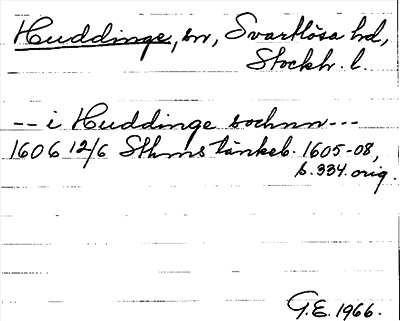 Huddinge, sn, Svartlösa hd,
Stockh. l.
-- i Huddinge sochnn ---
1606 12/6 Sthms tänkeb. 1605-08,
b. 334. orig.
G.E. 1966.